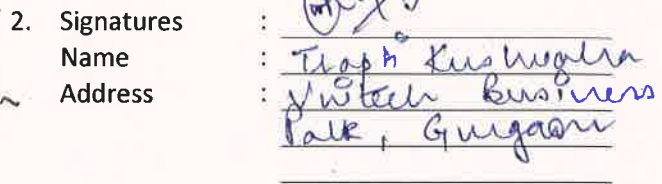 2. Signatures :
Name : Trapti Kushwaha
Address : Unitech Business
Park, Gurgaon